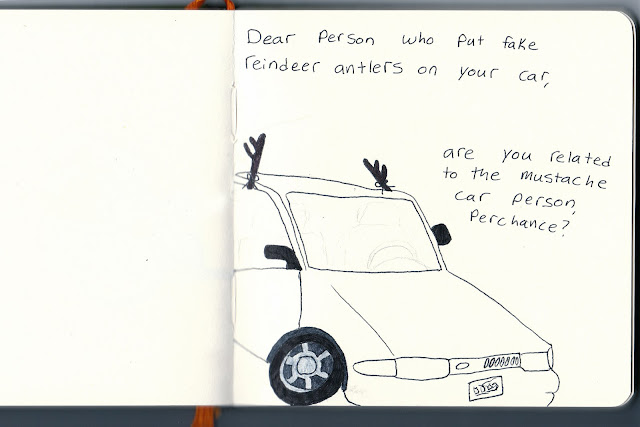 Dear Person who put fake
reindeer antlers on your car,
are you related
to the mustache
car person,
perchance?